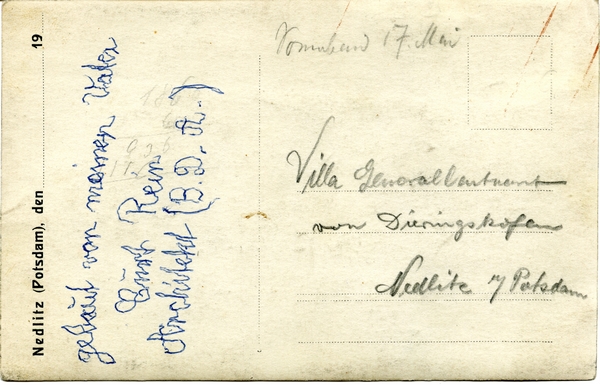 Nedlitz (Potsdam), den 19
gebaut von meinem Vater
Curt Rein
Architekt (B.D.A.)
Sonnabend 17. Mai
Villa Generalleutnant
von Dieringshofen
Nedlitz / Potsdam